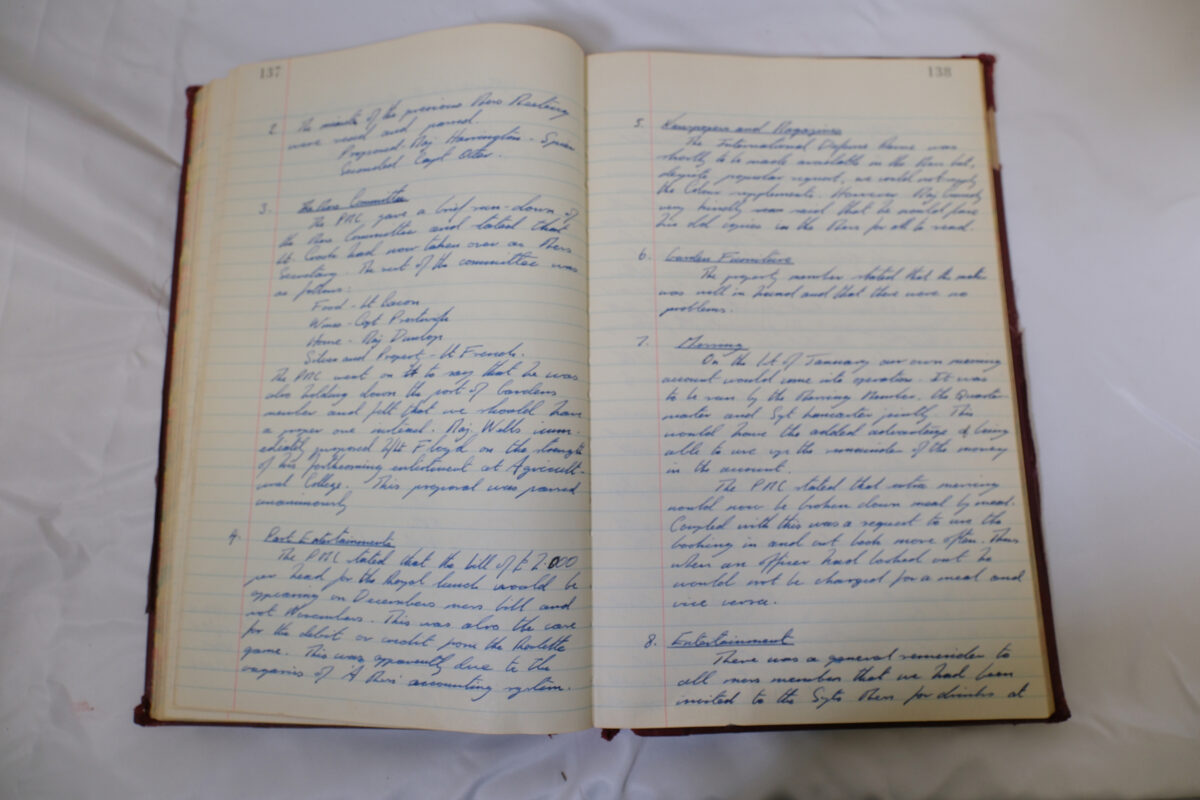 137
2. The minutes of the previous Mess Meeting
were read and passed.
Proposed. Maj Harrington-Spier
Seconded Capt
3. The Mess Committee
The PMC gave a brief run-down of
the Mess Committee and stated that
Lt had now taken over as Mess
Secretary. The rest of the committee was
as follows:
Food - Lt Bacon
Wines - Capt
House - Maj Dunlop
Silver and Property - Lt French.
The PMC went on to say that he was
also holding down the post of Gardens
member and felt that we should have
a proper one instead. Maj Wells imm-
ediately proposed 2/Lt Floyd on the strength
of his forthcoming enlistment at Agricult-
ural College. This proposal was passed
unanimously
4. Past Entertainments
The PMC stated that the bill of £2.000
per head for the Royal lunch would be
appearing on Decembers mess bill and
not Novembers. This was also the case
for the debit or credit from the Roulette
game. This was apparently due to the
vagaries of 'A' Mess' accounting system.
138
5. Newspapers and Magazines
The International Defence was
shortly to be made available in the Mess but,
despite popular request, we could not supply
the Colour supplements. However Maj
very kindly said that he would place
his old copies in the Mess for all to read.
6. Garden Furniture
The property member stated that the
was well in hand and that there were no
problems.
7. Messing
On the 1st of January our own messing
account would come into operation. It was
to be run by the Messing Member, the Quarter-
master and Sgt Lancaster jointly. This
would have the added advantage of being
able to use up the remainder of the money
in the account.
The PMC stated that extra messing
would now be broken down meal by meal.
Coupled with this was a request to use the
booking in and out book more often. Thus
when an officer had booked out he
would not be charged for a meal and
vice versa.
8. Entertainment
There was a general reminder to
all mess members that we had been
invited to the Sgts Mess for drinks at